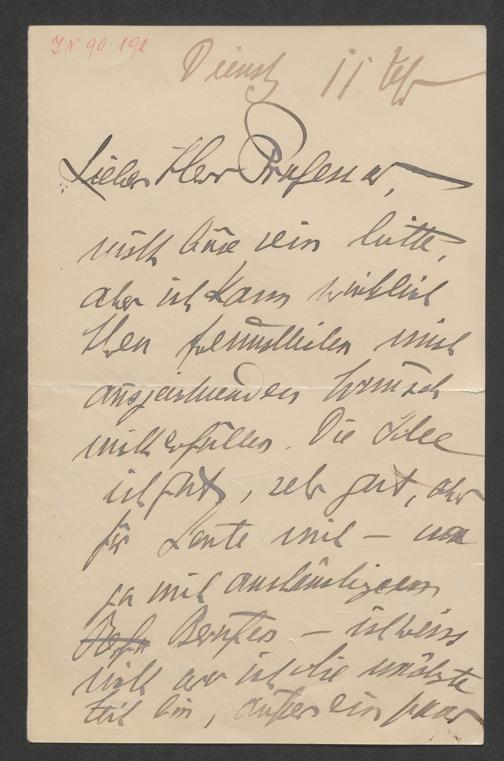 I.N 90.192
Dienst 11 Uhr
Lieber Herr Professor,
nicht böse sein bitte,
aber ich kann wirklich
Ihren freundlichen mich
auszeichnenden Wunsch
nicht erfüllen. Die Idee
ist gut, sehr gut, aber
für Leute mit –
ja mit anständigem
Berufes – ich weiss
nicht wer ich die
Zeit bin, außer ein paar